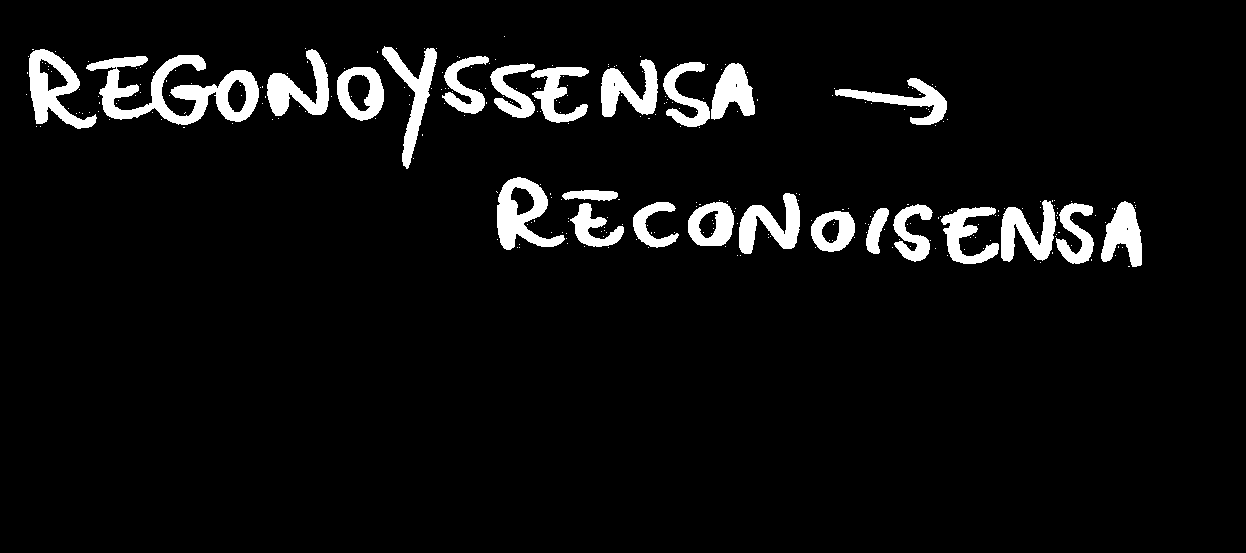 REGONOYSSENSA →
RECONOISENSA